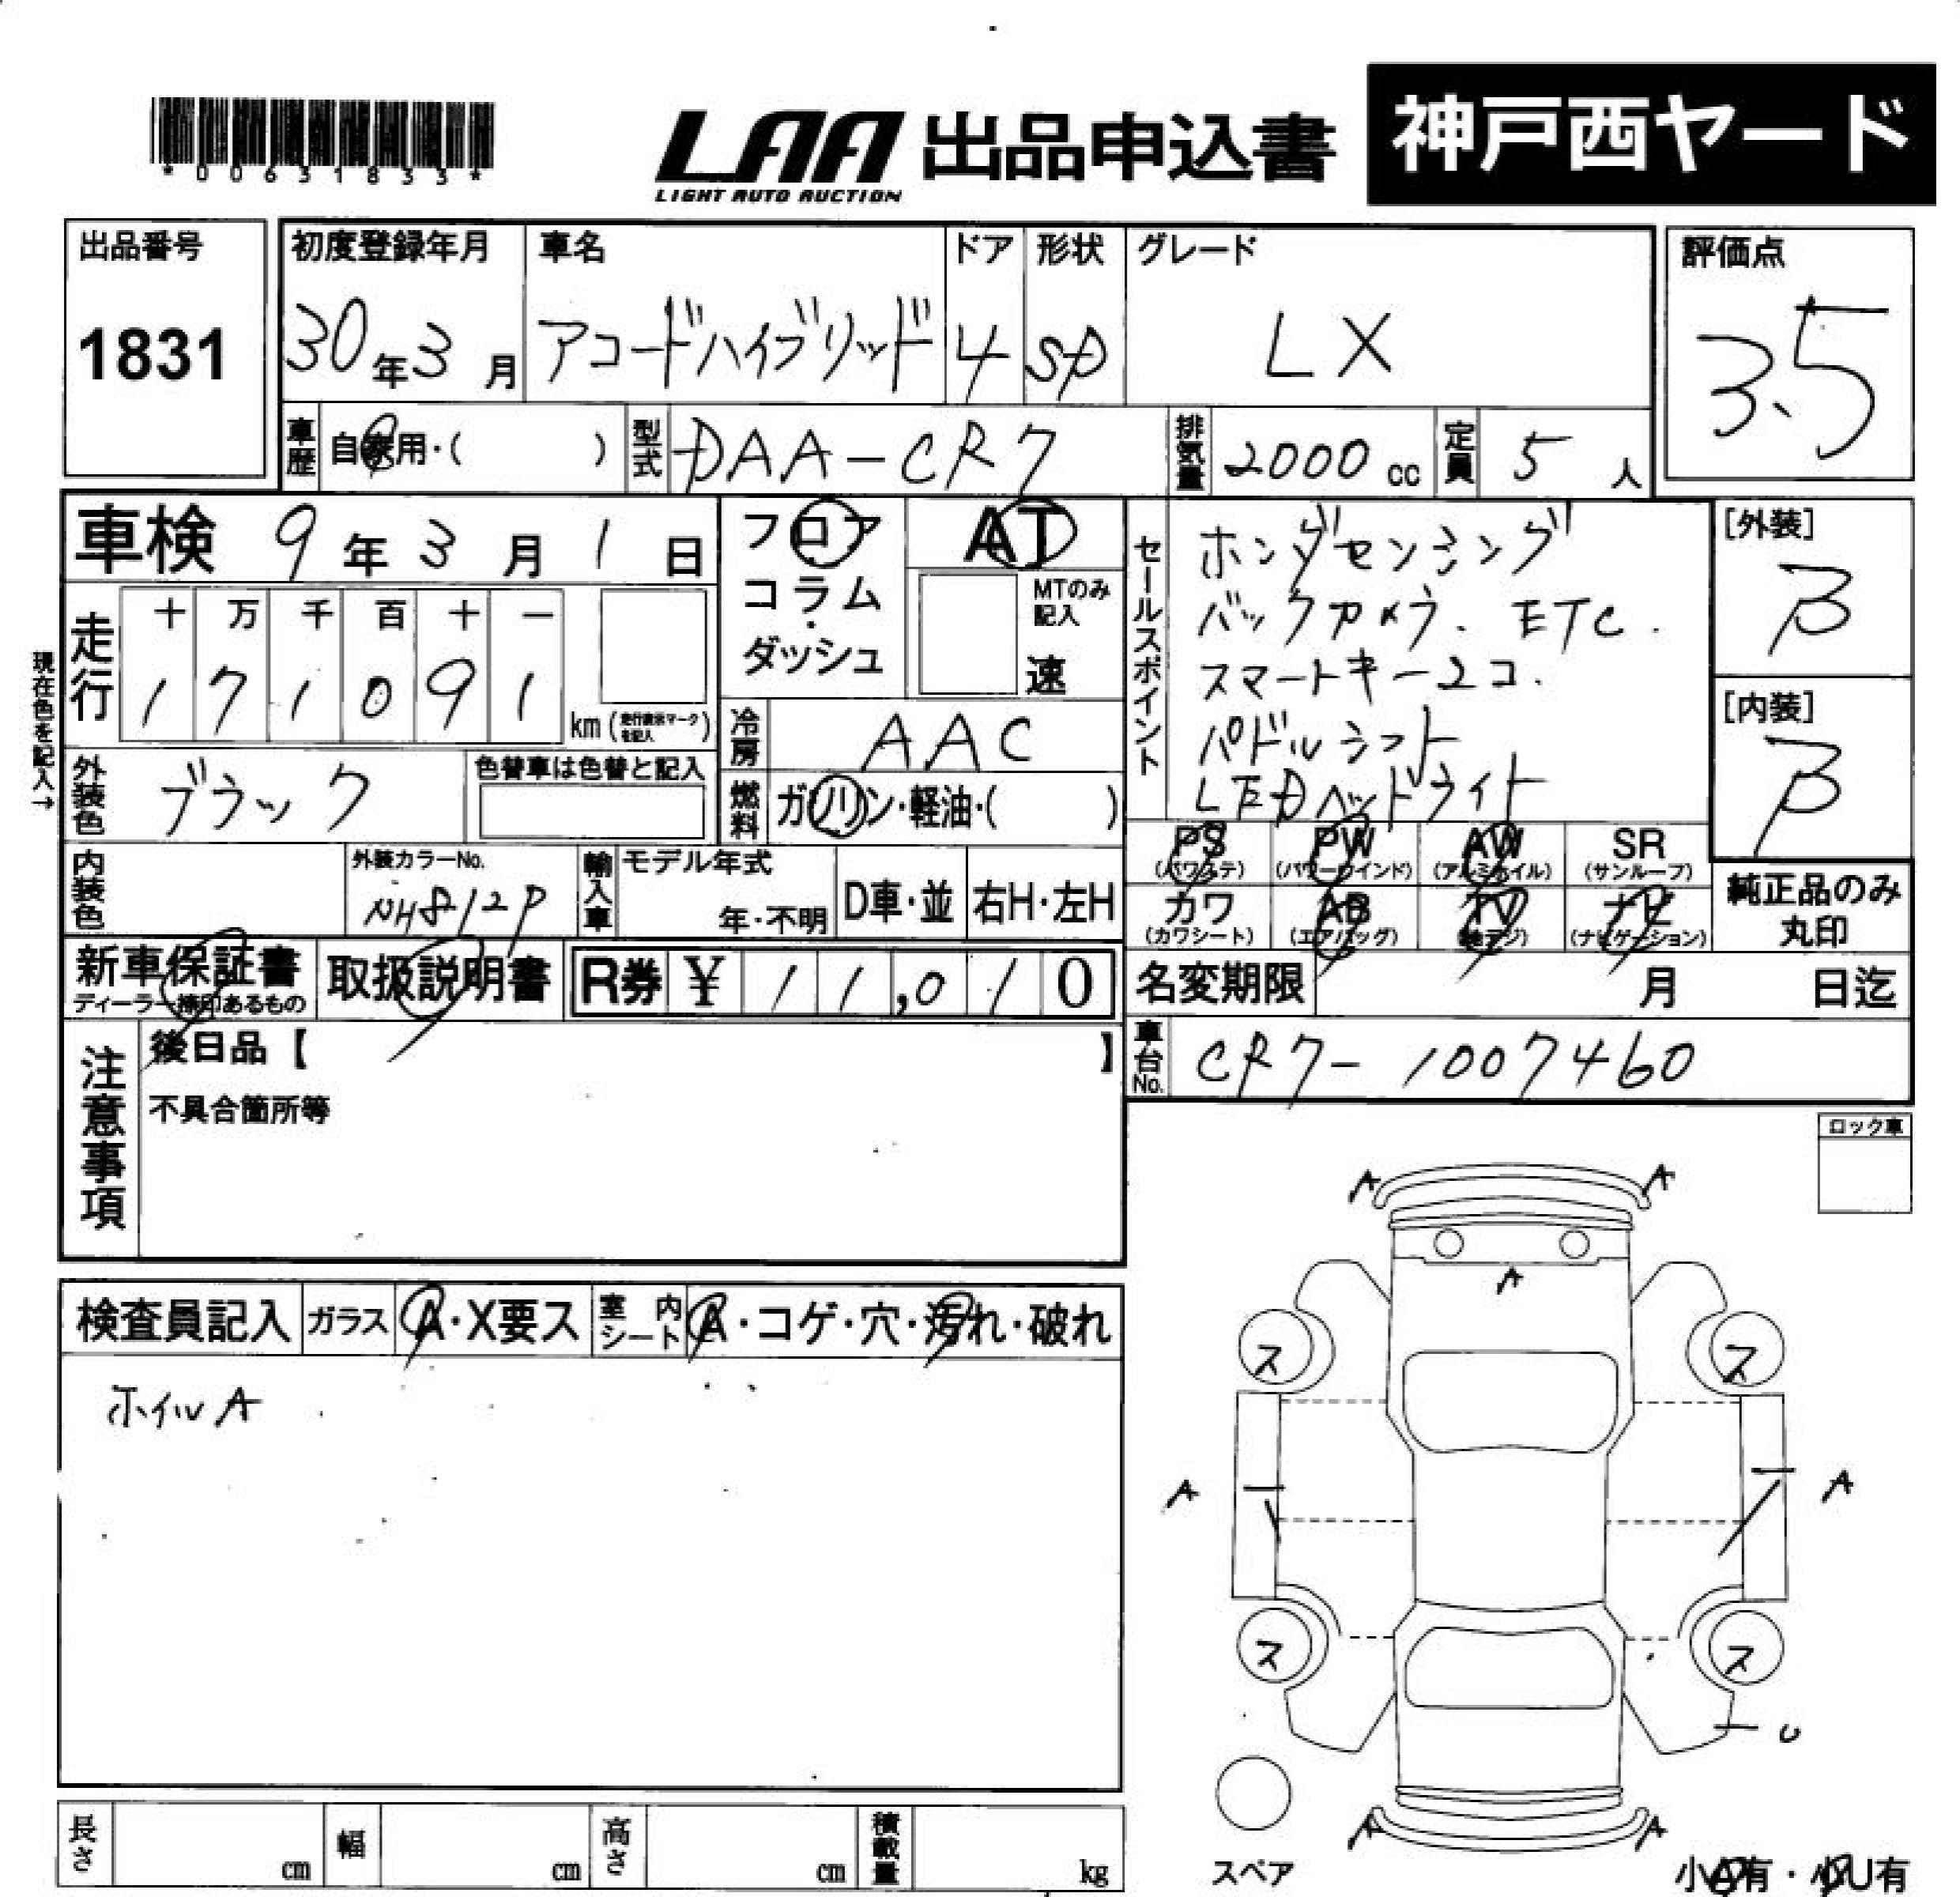 *00631833*
LAA 出品申込書 神戸西ヤード
LIGHT AUTO AUCTION
出品番号 1831
初度登録年月 30年3月
車名 アコードハイブリッド
ドア 4
形状 SD
グレード LX
評価点 3.5
車歴 自家用・( )
型式 DAA-CR7
排気量 2000 cc
定員 5 人
車検 9年3月1日
フロア
コラム
ダッシュ
AT
MTのみ記入
速
走行 十 万 千 百 十 一
1 7 1 0 9 1
km (走行表示マークを記入)
現在色を記入→
外装色 ブラック
色替車は色替と記入
冷房 AAC
燃料 ガソリン・軽油・( )
セールスポイント
ホンダセンシング
バックカメラ、ETC.
スマートキー2コ.
パドルシフト
LEDヘッドライト
[外装] B
[内装] B
内装色
外装カラーNo. NH812P
輸入車 モデル年式
年・不明
D車・並
右H・左H
PS (パワステ)
PW (パワーウインド)
AW (アルミホイル)
SR (サンルーフ)
カワ (カワシート)
AB (エアバッグ)
TV (地デジ)
ナビ (ナビゲーション)
純正品のみ
丸印
新車保証書
ディーラー捺印あるもの
取扱説明書
R券 ¥ 11,010
名変期限 月 日迄
車台No. CR7-1007460
注意事項
後日品【 】
不具合箇所等
ロック車
検査員記入
ガラス A・X要ス
室内シート A・コゲ・穴・汚れ・破れ
ホイルA
A A
A
ス ス
A A
ス ス
U
A A
スペア
小A有・小U有
長さ cm
幅 cm
高さ cm
積載量 kg